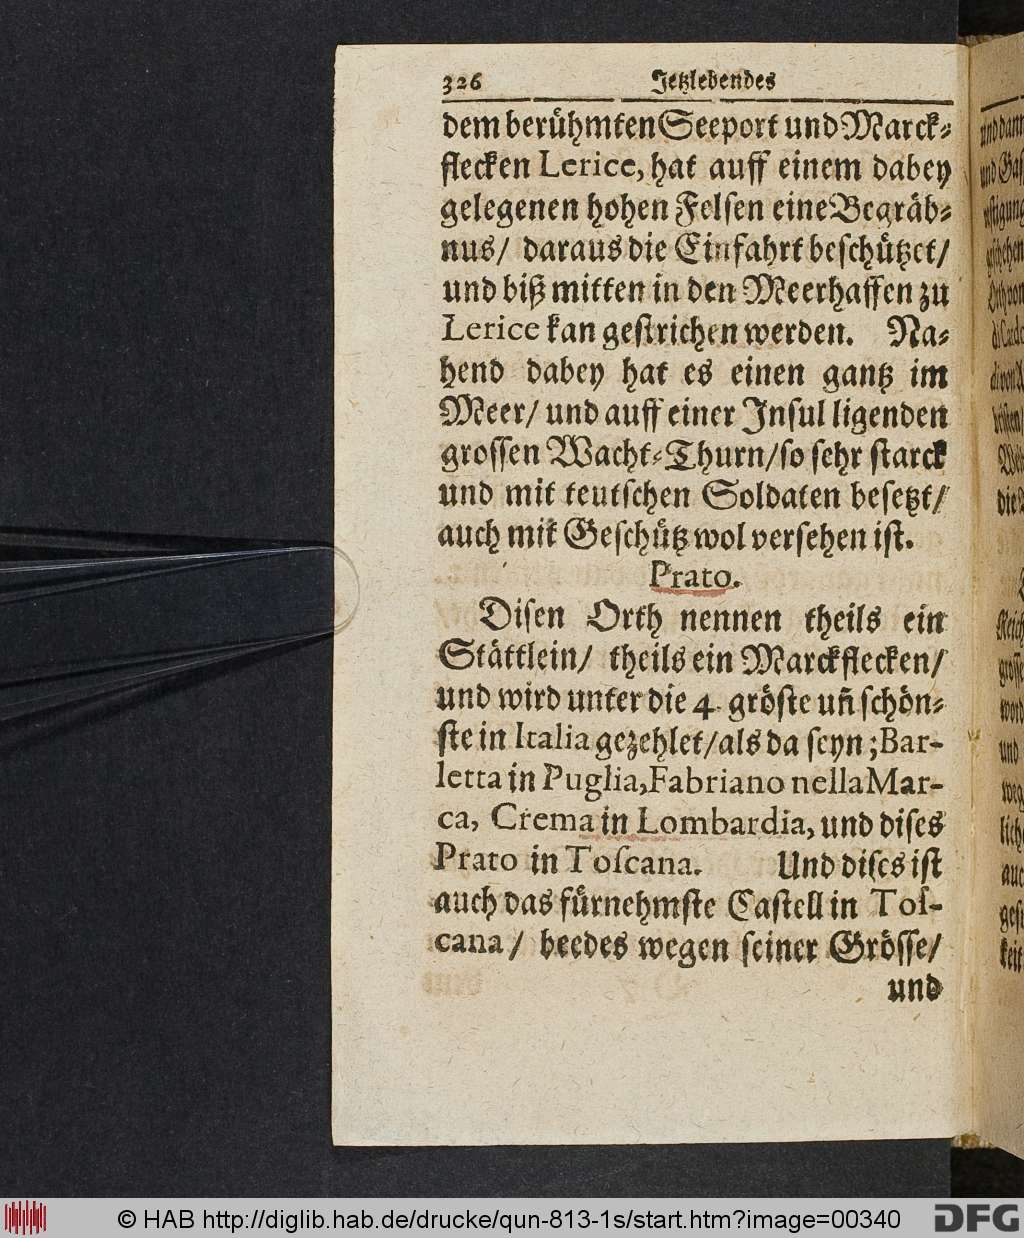 326 Jetzlebendes
dem berühmten Seeport und Marck-
flecken Lerice, hat auff einem dabey
gelegenen hohen Felsen eine Begräb-
nus/ daraus die Einfahrt beschützet/
und biß mitten in den Meerhaffen zu
Lerice kan gestrichen werden. Na-
hend dabey hat es einen gantz im
Meer/ und auff einer Insul ligenden
grossen Wacht-Thurn/ so sehr starck
und mit teutschen Soldaten besetzt/
auch mit Geschütz wol versehen ist.
Prato.
Disen Orth nennen theils ein
Stättlein/ theils ein Marckflecken/
und wird unter die 4. gröste uñ schön-
ste in Italia gezehlet/ als da seyn; Bar-
letta in Puglia, Fabriano nella Mar-
ca, Crema in Lombardia, und dises
Prato in Toscana. Und dises ist
auch das fürnehmste Castell in Tos-
cana/ beedes wegen seiner Grösse/
und
© HAB http://diglib.hab.de/drucke/qun-813-1s/start.htm?image=00340
DFG